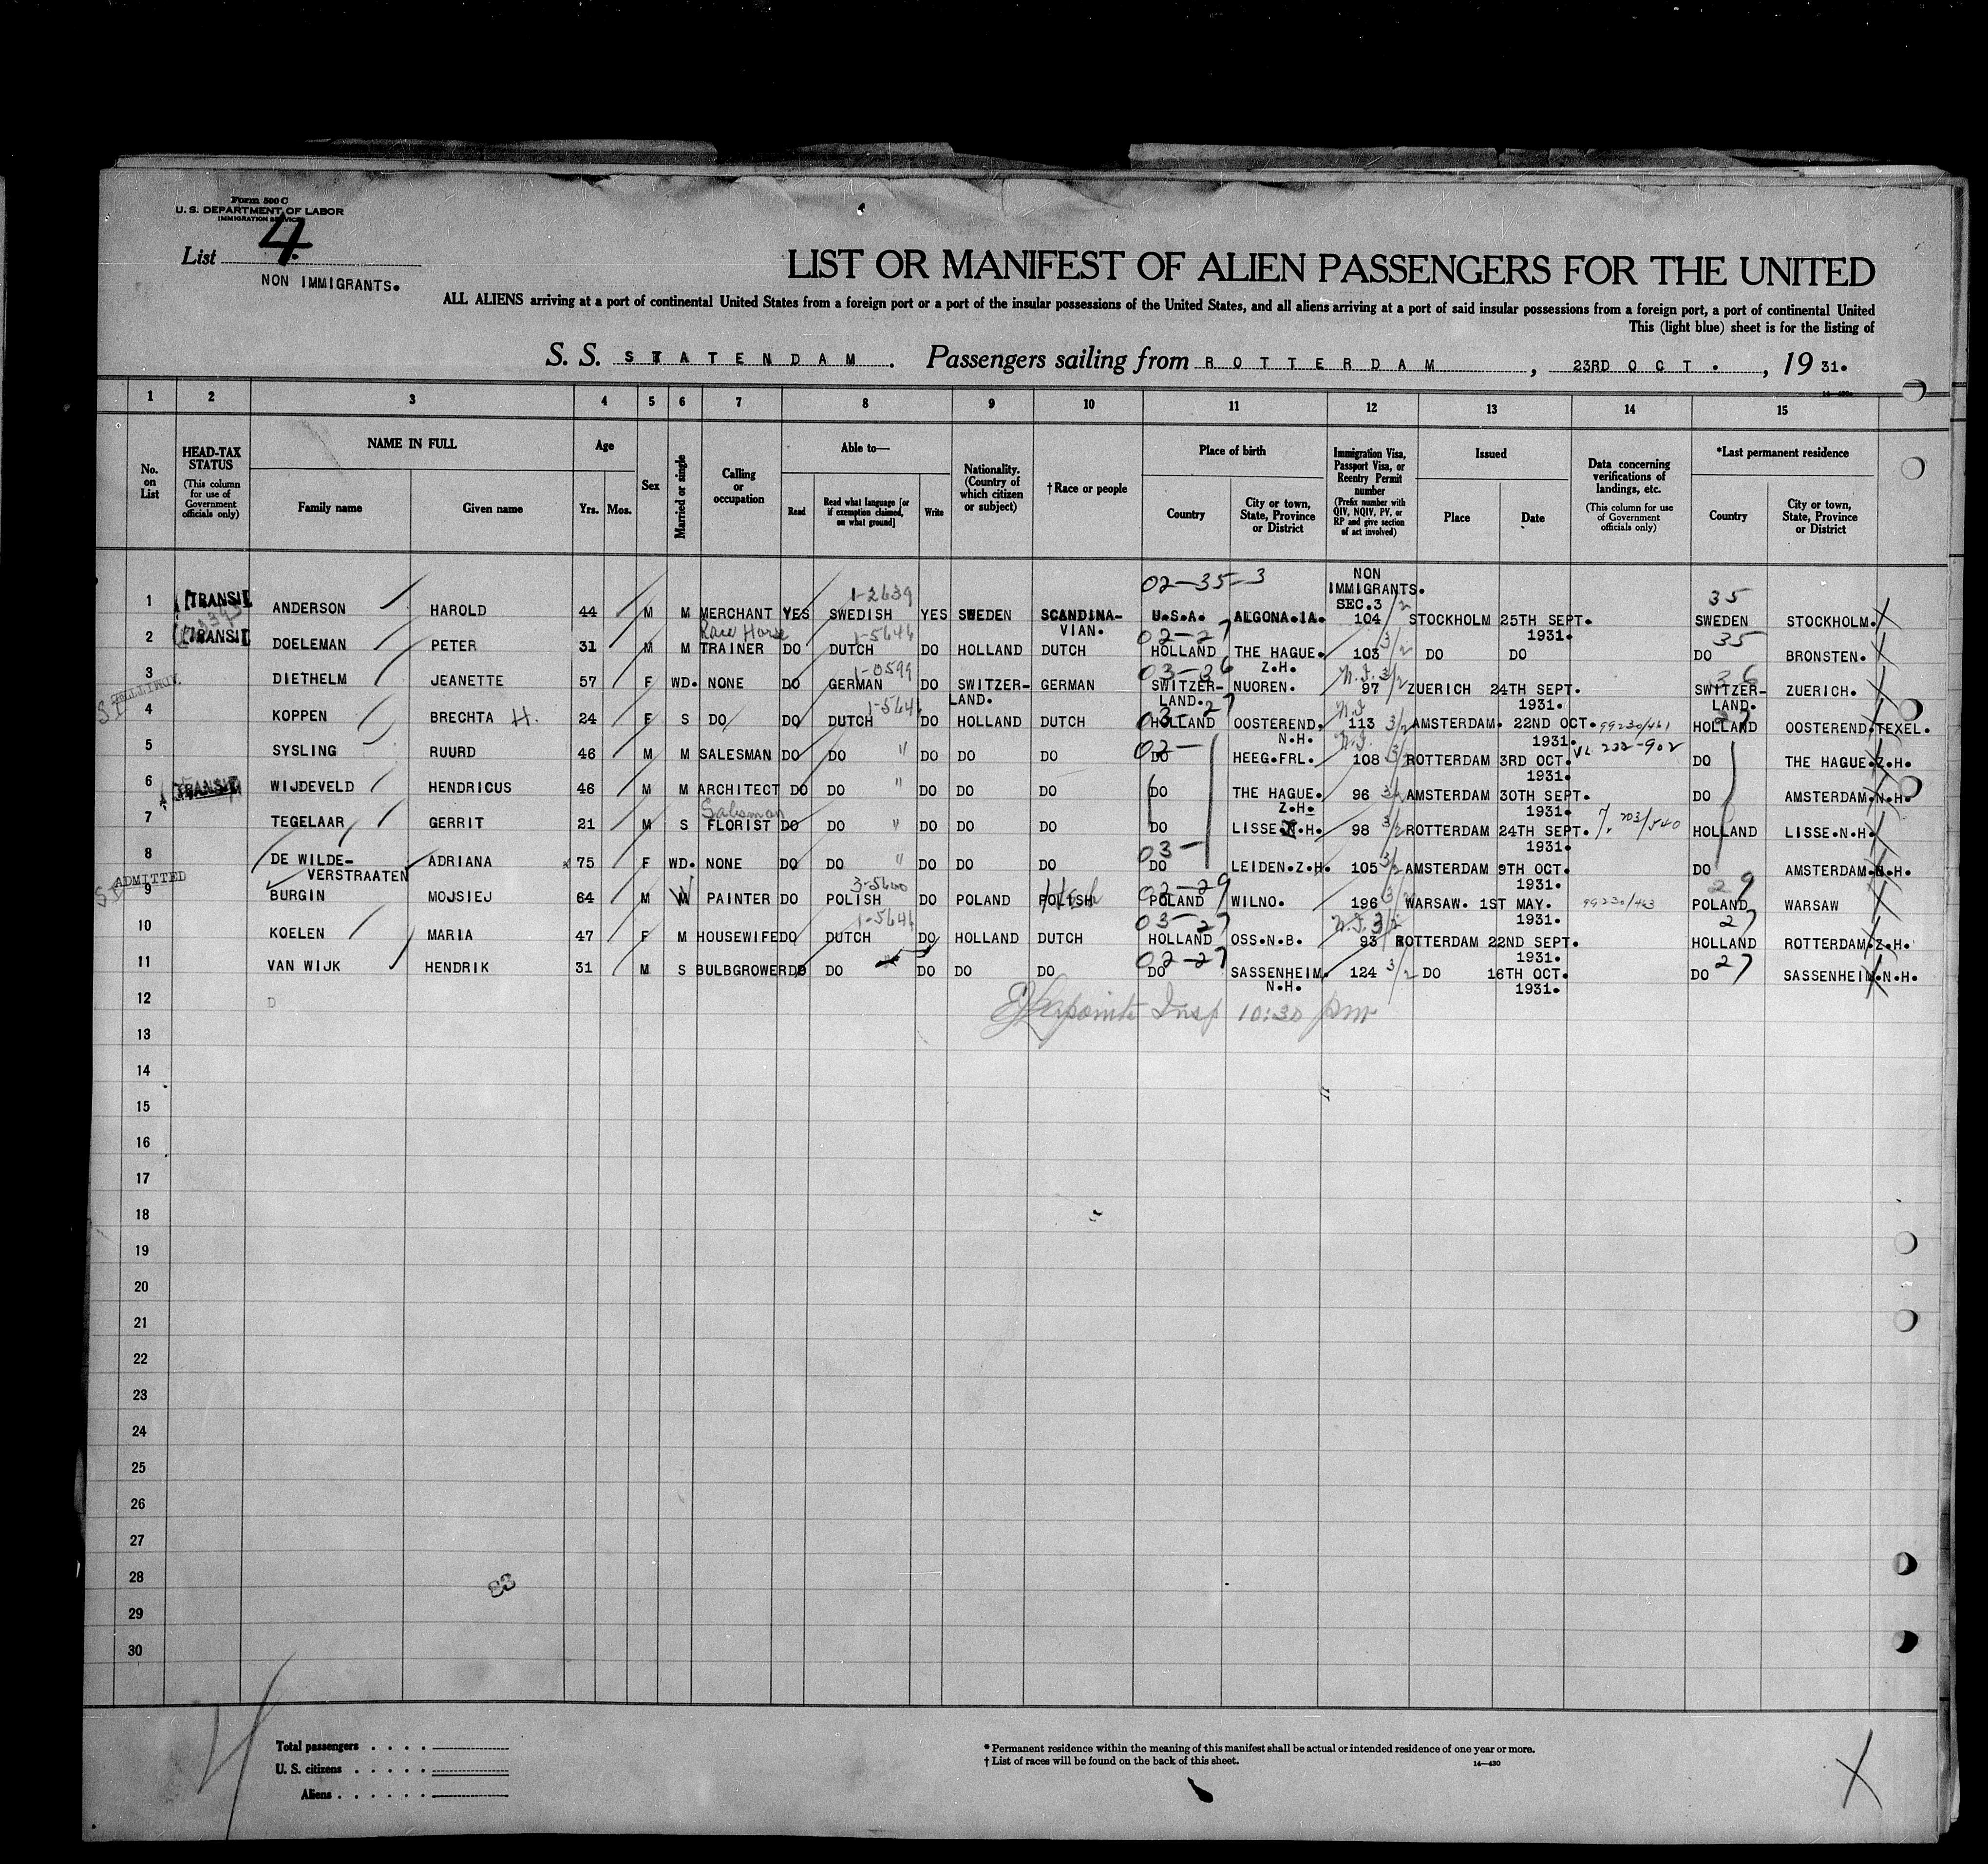 Form 500 C
U. S. DEPARTMENT OF LABOR
IMMIGRATION SERVICE
List 4
NON IMMIGRANTS.
LIST OR MANIFEST OF ALIEN PASSENGERS FOR THE UNITED
ALL ALIENS arriving at a port of continental United States from a foreign port or a port of the insular possessions of the United States, and all aliens arriving at a port of said insular possessions from a foreign port, a port of continental United
This (light blue) sheet is for the listing of
S. S. STATENDAM. Passengers sailing from ROTTERDAM, 23RD OCT., 19 31.
1 2 3 4 5 6 7 8 9 10 11 12 13 14 15
No. on List
HEAD-TAX STATUS (This column for use of Government officials only)
NAME IN FULL
Family name
Given name
Age
Yrs. Mos.
Sex
Married or single
Calling or occupation
Able to—
Read
Read what language [or if exemption claimed, on what ground]
Write
Nationality. (Country of which citizen or subject)
†Race or people
Place of birth
Country
City or town, State, Province or District
Immigration Visa, Passport Visa, or Reentry Permit number (Prefix number with QIV, NQIV, PV, or RP and give section of act involved)
Issued
Place
Date
Data concerning verifications of landings, etc. (This column for use of Government officials only)
*Last permanent residence
Country
City or town, State, Province or District
1-2639 02-35-3 NON IMMIGRANTS. SEC.3 35
1 TRANSIT ANDERSON HAROLD 44 M M MERCHANT YES SWEDISH YES SWEDEN SCANDINA-VIAN. U.S.A. ALGONA.IA. 104 3/2 STOCKHOLM 25TH SEPT. 1931. SWEDEN STOCKHOLM.
Race Horse 1-5646 02-27 35
2 TRANSIT DOELEMAN PETER 31 M M TRAINER DO DUTCH DO HOLLAND DUTCH HOLLAND THE HAGUE. Z.H. 103 3/2 DO DO DO BRONSTEN.
1-0599 03-36 36
3 DIETHELM JEANETTE 57 F WD. NONE DO GERMAN DO SWITZER-LAND. GERMAN SWITZER-LAND. NUOREN. 97 3/2 ZUERICH 24TH SEPT. 1931. SWITZER-LAND. ZUERICH.
1-5646 03-27 27
4 KOPPEN BRECHTA H. 24 F S DO DO DUTCH DO HOLLAND DUTCH HOLLAND OOSTEREND. N.H. 113 3/2 AMSTERDAM. 22ND OCT. 1931. 99230/461 HOLLAND OOSTEREND.TEXEL.
02-
5 SYSLING RUURD 46 M M SALESMAN DO DO " DO DO DO DO HEEG.FRL. 108 3/2 ROTTERDAM 3RD OCT. 1931. VL 232-902 DO THE HAGUE.Z.H.
6 TRANSIT WIJDEVELD HENDRICUS 46 M M ARCHITECT DO DO " DO DO DO DO THE HAGUE. Z.H. 96 3/2 AMSTERDAM 30TH SEPT. 1931. DO AMSTERDAM.N.H.
Salesman
7 TEGELAAR GERRIT 21 M S FLORIST DO DO " DO DO DO DO LISSE.N.H. 98 3/2 ROTTERDAM 24TH SEPT. 1931. HOLLAND LISSE.N.H.
03-
8 DE WILDE-VERSTRAATEN ADRIANA 75 F WD. NONE DO DO " DO DO DO DO LEIDEN.Z.H. 105 3/2 AMSTERDAM 9TH OCT. 1931. DO AMSTERDAM.N.H.
ADMITTED
3-5600 02-29 29
9 BURGIN MOJSIEJ 64 M M PAINTER DO POLISH DO POLAND POLISH POLAND WILNO. 196 WARSAW. 1ST MAY. 1931. 99230/463 POLAND WARSAW
1-5646 03-27 27
10 KOELEN MARIA 47 F M HOUSEWIFE DO DUTCH DO HOLLAND DUTCH HOLLAND OSS.N.B. 93 3/2 ROTTERDAM 22ND SEPT. 1931. HOLLAND ROTTERDAM.Z.H.
02-27 27
11 VAN WIJK HENDRIK 31 M S BULBGROWER DO DO DO DO DO DO SASSENHEIM. N.H. 124 3/2 DO 16TH OCT. 1931. DO SASSENHEIM.N.H.
12 D
Insp 10:30 pm
13
14
15
16
17
18
19
20
21
22
23
24
25
26
27
28
29
30
Total passengers
U. S. citizens
Aliens
* Permanent residence within the meaning of this manifest shall be actual or intended residence of one year or more.
† List of races will be found on the back of this sheet.
14—430